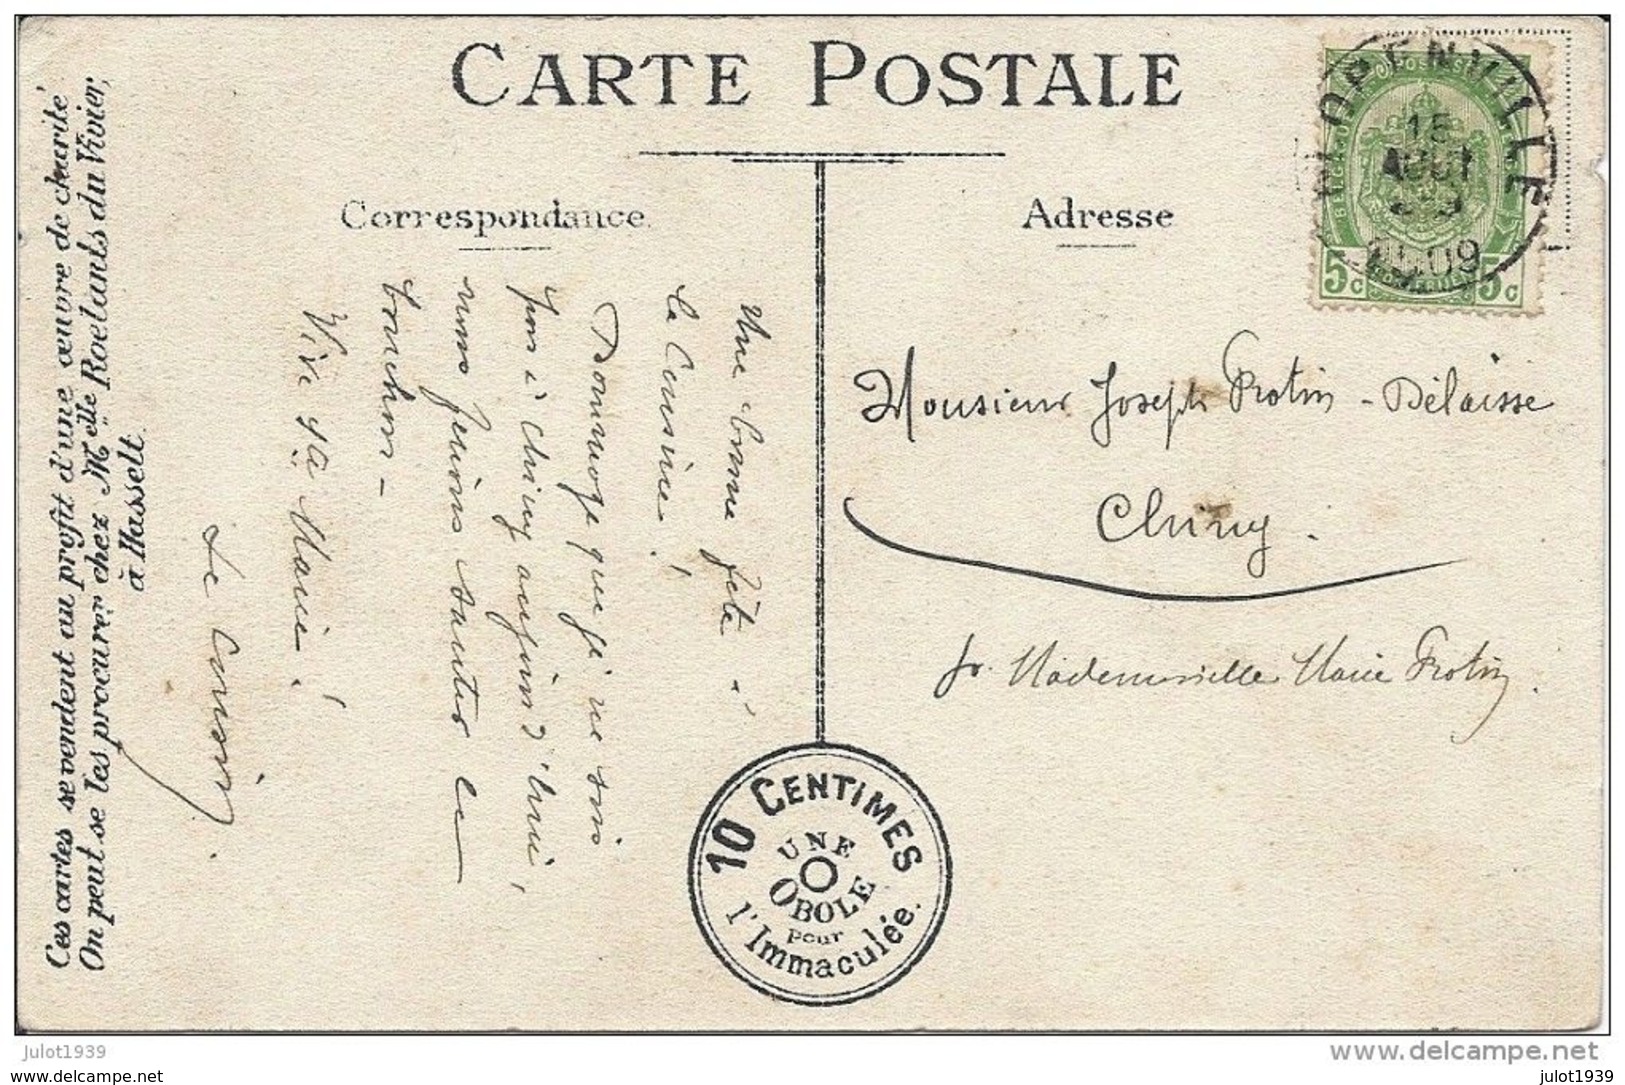 CARTE POSTALE
Correspondance
Adresse
FLORENVILLE
15
AOUT
1909
BELGIQUE
POSTES
5c 5c
Une bonne fête à
la Cousine!
Dommage que je ne sois
pas à Chiny aujourd'hui,
nous ferions sauter le
bouchon –
Vive sa Marie!
Le Cousin.
Monsieur Joseph Protin - Délaisse
Chiny.
pr. Mademoiselle Marie Protin.
Ces cartes se vendent au profit d'une œuvre de charité
On peut se les procurer chez Melle Roelants du Vivier,
à Hasselt.
10 CENTIMES
UNE
OBOLE
pour
l'Immaculée.
julot1939
www.delcampe.net
julot1939
julot1939